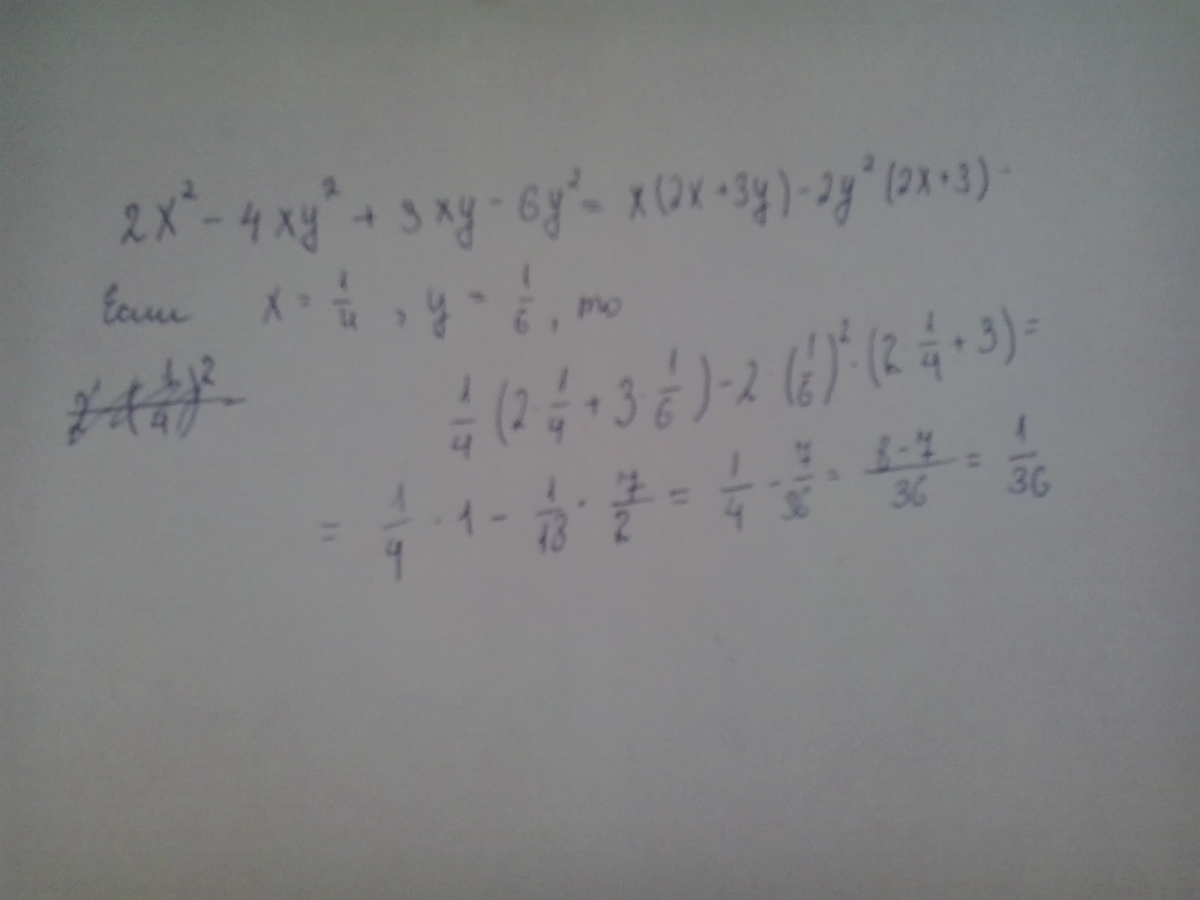 2x² - 4xy² + 3xy - 6y² = x(2x+3y) - 2y²(2x+3)
Если x = 1/4, y = 1/6, то
1/4 (2·1/4 + 3·1/6) - 2·(1/6)²·(2·1/4 + 3) =
= 1/4 · 1 - 1/18 · 7/2 = 1/4 - 7/36 = 8-7/36 = 1/36